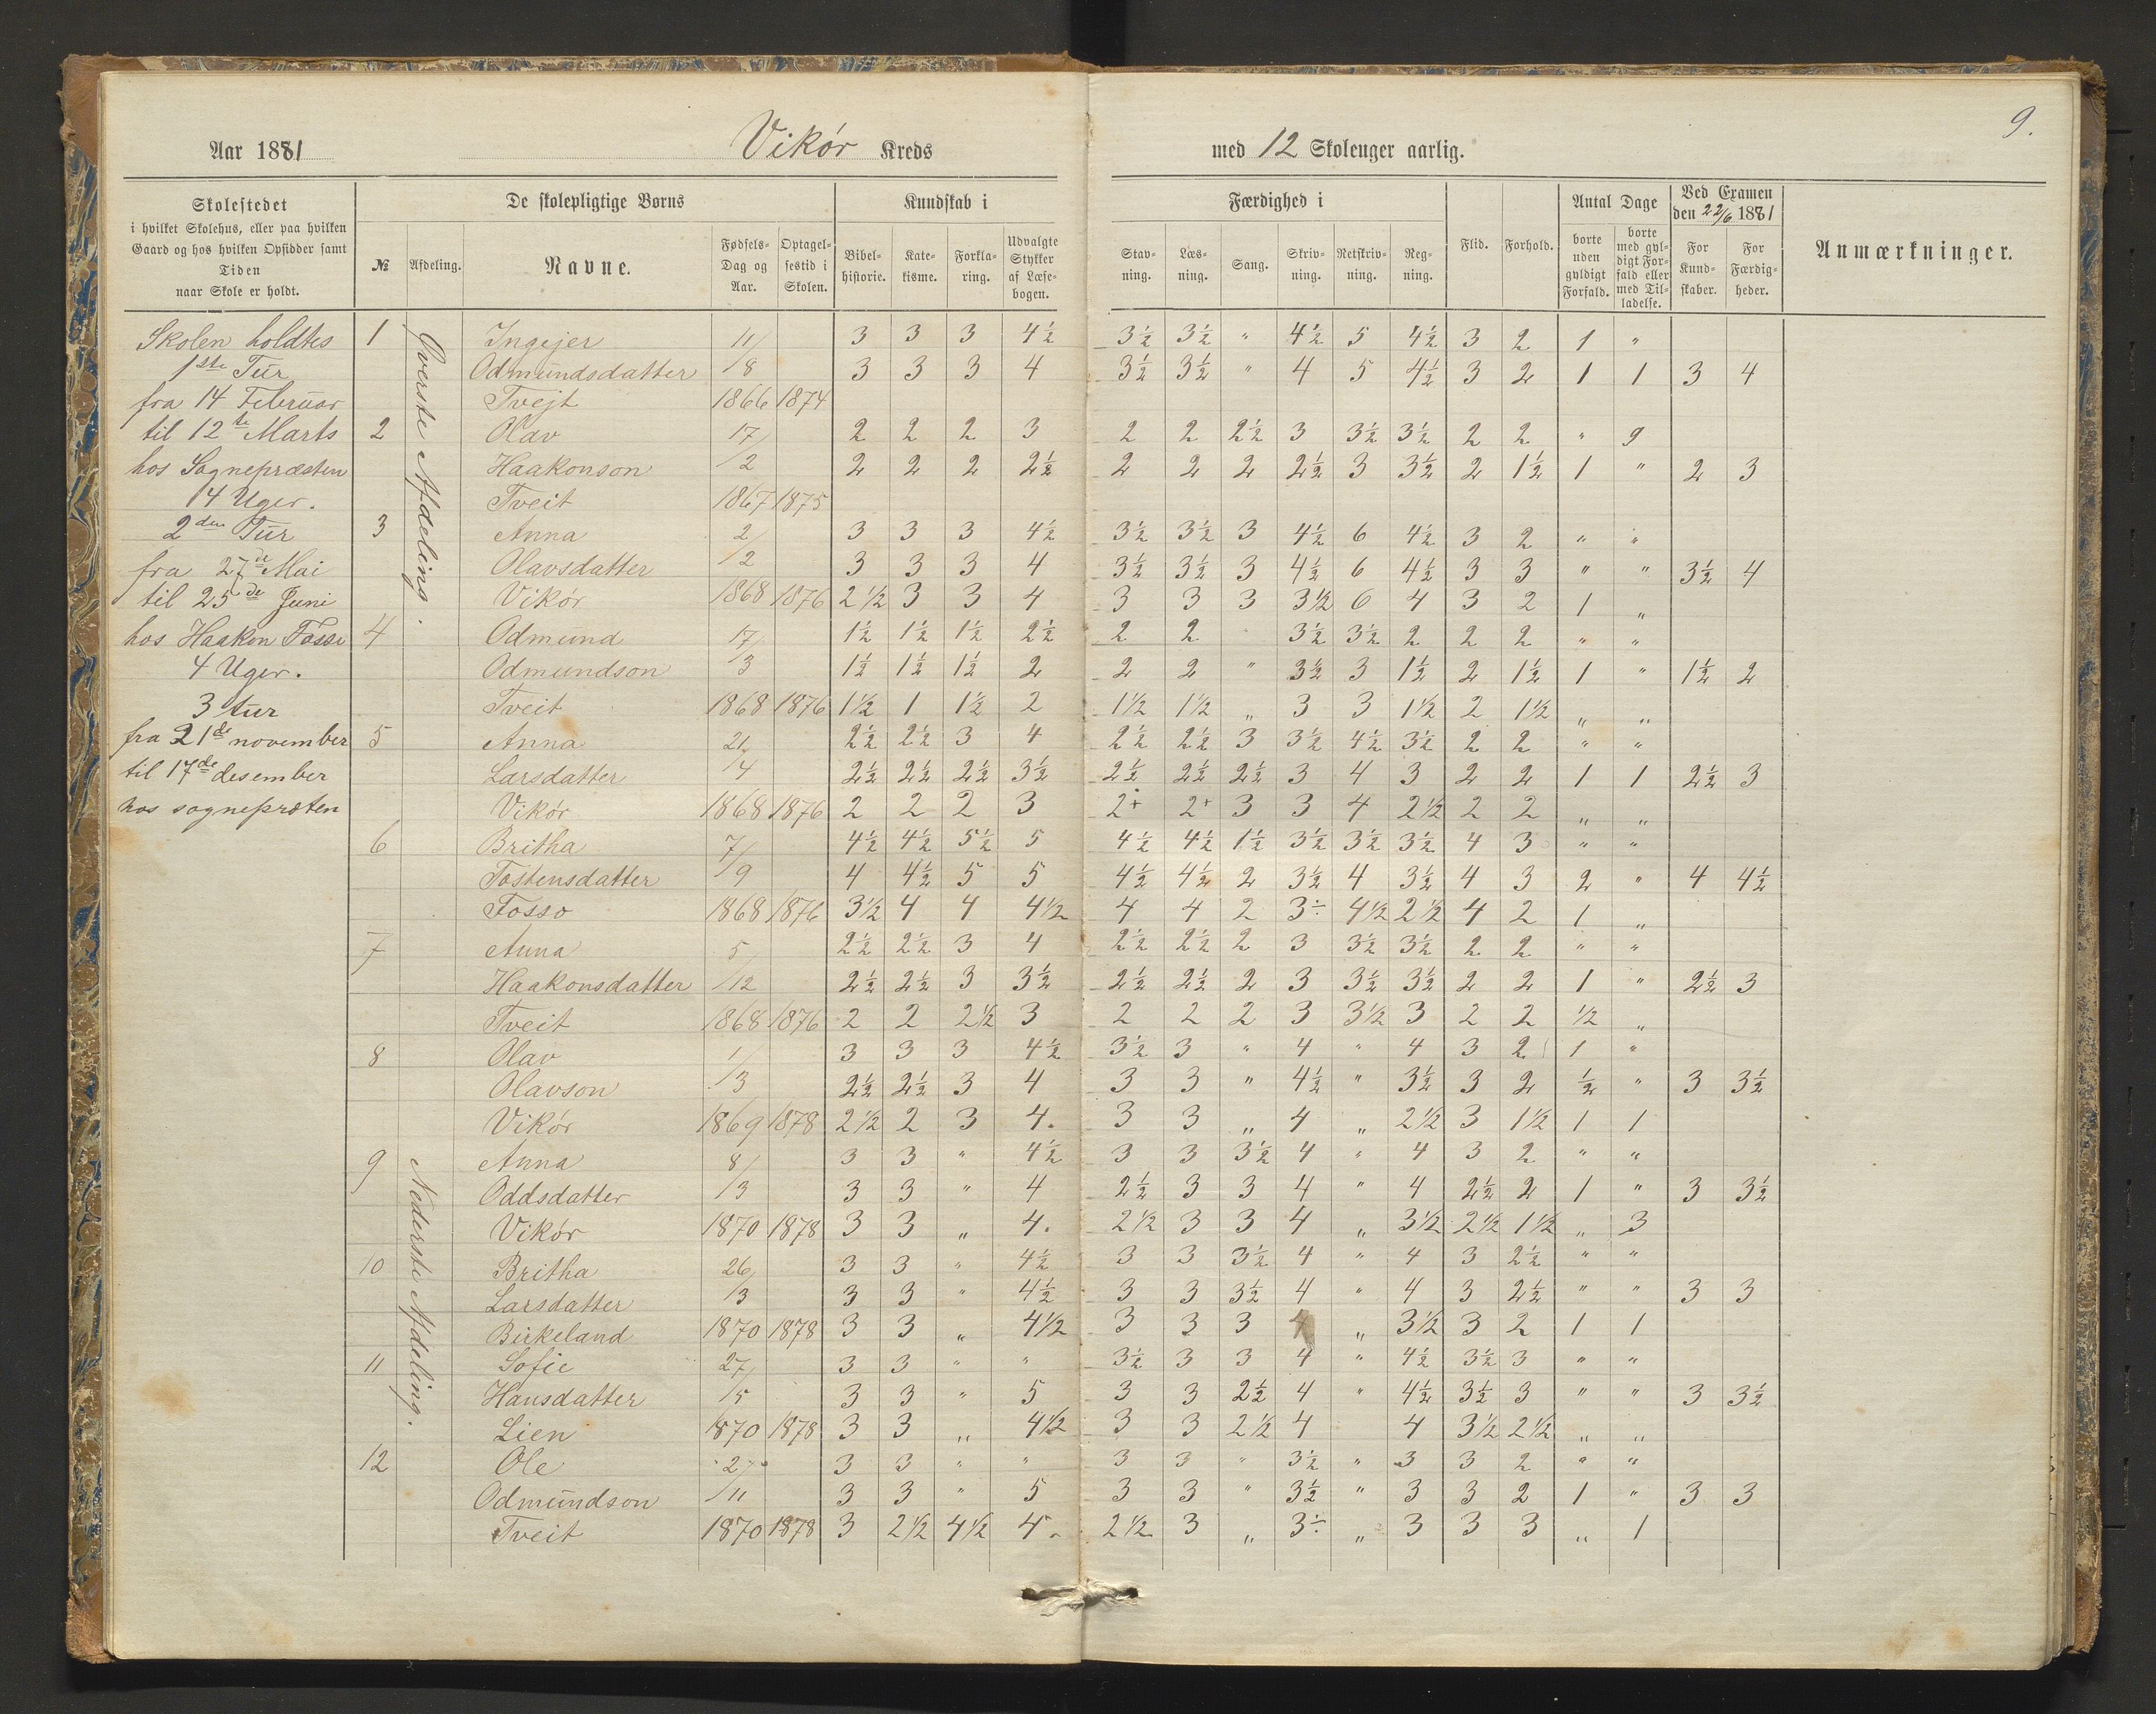 9.
Aar 1881 Vikør Kreds med 12 Skoleuger aarlig.
Skolestedet
i hvilket Skolehus, eller paa hvilken
Gaard og hos hvilken Opsidder samt
Tiden
naar Skole er holdt.
De skolepligtige Børns
№ Afdeling. Navne. Fødsels-Dag og Aar. Optagelsestid i Skolen.
Kundskab i
Bibelhistorie. Katekisme. Forklaring. Udvalgte Stykker af Læsebogen.
Færdighed i
Stavning. Læsning. Sang. Skrivning. Retskrivning. Regning.
Flid. Forhold.
Antal Dage
borte uden gyldigt Forfald. borte med gyldigt Forfald eller med Tilladelse.
Ved Examen
den 22/6 1881
For Kundskaber. For Færdigheder.
Anmærkninger.
Skolen holdtes
1ste Tur
fra 14 Februar
til 12te Marts
hos Sognepræsten
14 Uger.
2den Tur
fra 27de Mai
til 25de Juni
hos Haakon Fosse
4 Uger.
3 tur
fra 21de november
til 17de desember
hos sognepræten
Øverste Afdeling.
1 Ingejer 11/ 3 3 3 4½ 3½ 3½ " 4½ 5 4½ 3 2 1 "
Odmundsdatter /8 3 3 3 4 3½ 3½ " 4 5 4½ 3 2 1 1 3 4
Tvejt 1866 1874
2 Olav 17/ 2 2 2 3 2 2 2½ 3 3½ 3½ 2 2 " 9
Haakonson /2 2 2 2 2½ 2 2 2 2½ 3 3½ 2 1½ 1 " 2 3
Tveit 1867 1875
3 Anna 2/ 3 3 3 4½ 3½ 3½ 3 4½ 6 4½ 3 2 " "
Olavsdatter /2 3 3 3 4 3½ 3½ 3 4½ 6 4½ 3 3 " " 3½ 4
Vikør 1868 1876 2½ 3 3 4 3 3 3 3½ 6 4 3 2 1 "
4 Odmund 17/ 1½ 1½ 1½ 2½ 2 2 3½ 3½ 2 2 2 " "
Odmundson /3 1½ 1½ 1½ 2 2 2 " 3½ 3 1½ 2 1½ 1 " 1½ 2
Tveit 1868 1876 1½ 1 1½ 2 1½ 1½ " 3 3 1½ 2 1½ " "
5 Anna 21/ 2½ 2½ 3 4 2½ 2½ 3 3½ 4½ 3½ 2 2 " "
Larsdatter /4 2½ 2½ 2½ 3½ 2½ 2½ 2½ 3 4 3 2 2 1 1 2½ 3
Vikør 1868 1876 2 2 2 3 2+ 2+ 3 3 4 2½ 2 2 " "
6 Britha 7/ 4½ 4½ 5½ 5 4½ 4½ 1½ 3½ 3½ 3½ 4 3 " "
Tostensdatter /9 4 4½ 5 5 4½ 4½ 2 3½ 4 3½ 4 3 2 " 4 4½
Fosso 1868 1876 3½ 4 4 4½ 4 4 2 3÷ 4½ 2½ 4 2 1 "
7 Anna 5/ 2½ 2½ 3 4 2½ 2½ 2 3 3½ 3½ 2 2 " "
Haakonsdatter /12 2½ 2½ 3 3½ 2½ 2½ 2 3 3½ 3½ 2 2 1 " 2½ 3
Tveit 1868 1876 2 2 2½ 3 2 2 2 3 3½ 3 2 2 ½ "
8 Olav 1/ 3 3 3 4½ 3½ 3 " 4 " 4 3 2 1 "
Olavson /3 2½ 2½ 3 4 3 3 " 4½ " 3½ 3 2 ½ " 3 3½
Vikør 1869 1878 2½ 2 3 4. 3 3 " 4 " 2½ 3 1½ 1 1
Nederste Afdeling.
9 Anna 8/ 3 3 " 4½ 3 3 3½ 4 " 4 3 2 " "
Oddsdatter /3 3 3 " 4 2½ 3 3 4 " 4 2½ 2 1 " 3 3½
Vikør 1870 1878 3 3 " 4. 2½ 3 3 4 " 3½ 2½ 1½ " 3
10 Britha 26/ 3 3 " 4½ 3 3 3½ 4 " 4 3 2½ " "
Larsdatter /3 3 3 " 4½ 3 3 3½ 4 " 4 3 2½ " " 3 3
Birkeland 1870 1878 3 3 " 4½ 3 3 3 4 " 3½ 3 2 1 1
11 Sofie 27/ 3 3 " " 3½ 3 3 4 " 4½ 3½ 3 " "
Hansdatter /5 3 3 " 5 3 3 2½ 4 " 4½ 3½ 3 " " 3 3½
Lien 1870 1878 3 3 " 4½ 3 3 2½ 4 4 3½ 2½ " "
12 Ole 27/ 3 3 " " 3 3 " 3½ " 3 3 2 " "
Odmundson /11 3 3 " 5 3 3 " 3½ " 3 3 2 1 " 3 3
Tveit 1870 1878 3 2½ 4½ 4. 2½ 3 " 3÷ " 3 3 3 " 1